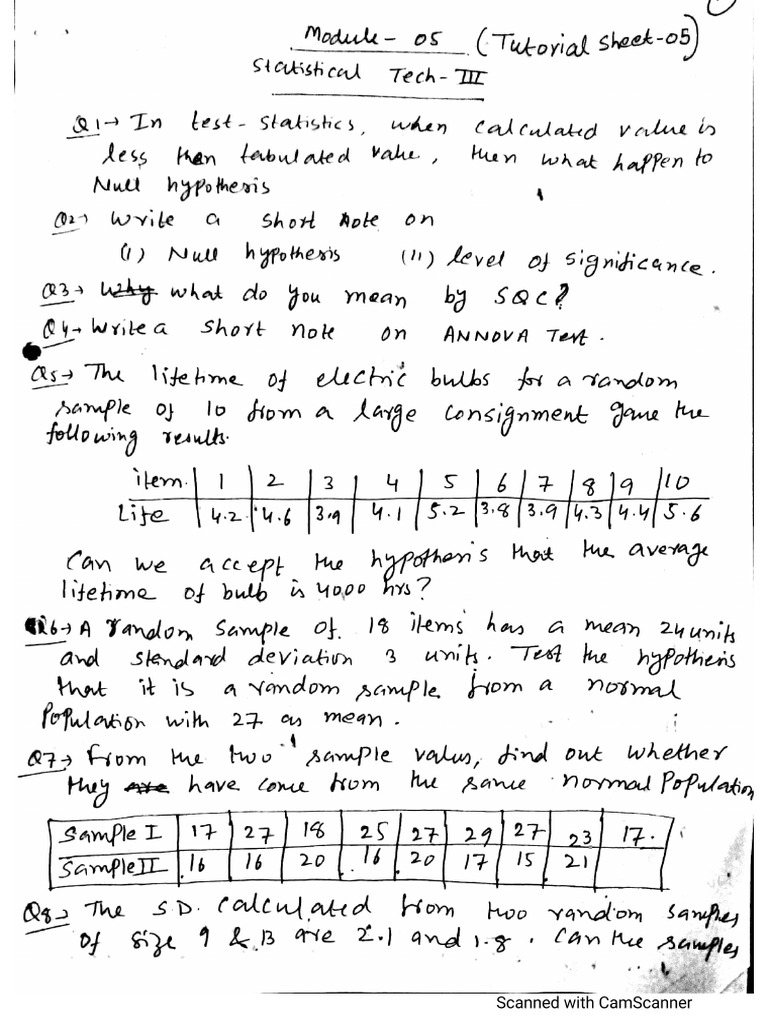 Module - 05 (Tutorial Sheet-05)
Statistical Tech - III
Q1→ In test-statistics, when calculated value is
less then tabulated value, then what happen to
Null hypothesis
Q2→ Write a short note on
(I) Null hypothesis (II) level of significance.
Q3→ Why what do you mean by SQC?
Q4→ Write a short note on ANNOVA Test.
Q5→ The lifetime of electric bulbs for a random
sample of 10 from a large consignment gave the
following results.
item 1 2 3 4 5 6 7 8 9 10
Life 4.2 4.6 3.9 4.1 5.2 3.8 3.9 4.3 4.4 5.6
Can we accept the hypothesis that the average
lifetime of bulb is 4000 hrs?
Q6→ A random sample of 18 items has a mean 24 units
and standard deviation 3 units. Test the hypothesis
that it is a random sample from a normal
Population with 27 as mean.
Q7→ From the two sample values, find out whether
they are have come from the same normal Population
Sample I 17 27 18 25 27 29 27 23 17.
Sample II 16 16 20 16 20 17 15 21
Q8→ The S.D. calculated from two random samples
of size 9 & 13 are 2.1 and 1.8. Can the samples
Scanned with CamScanner